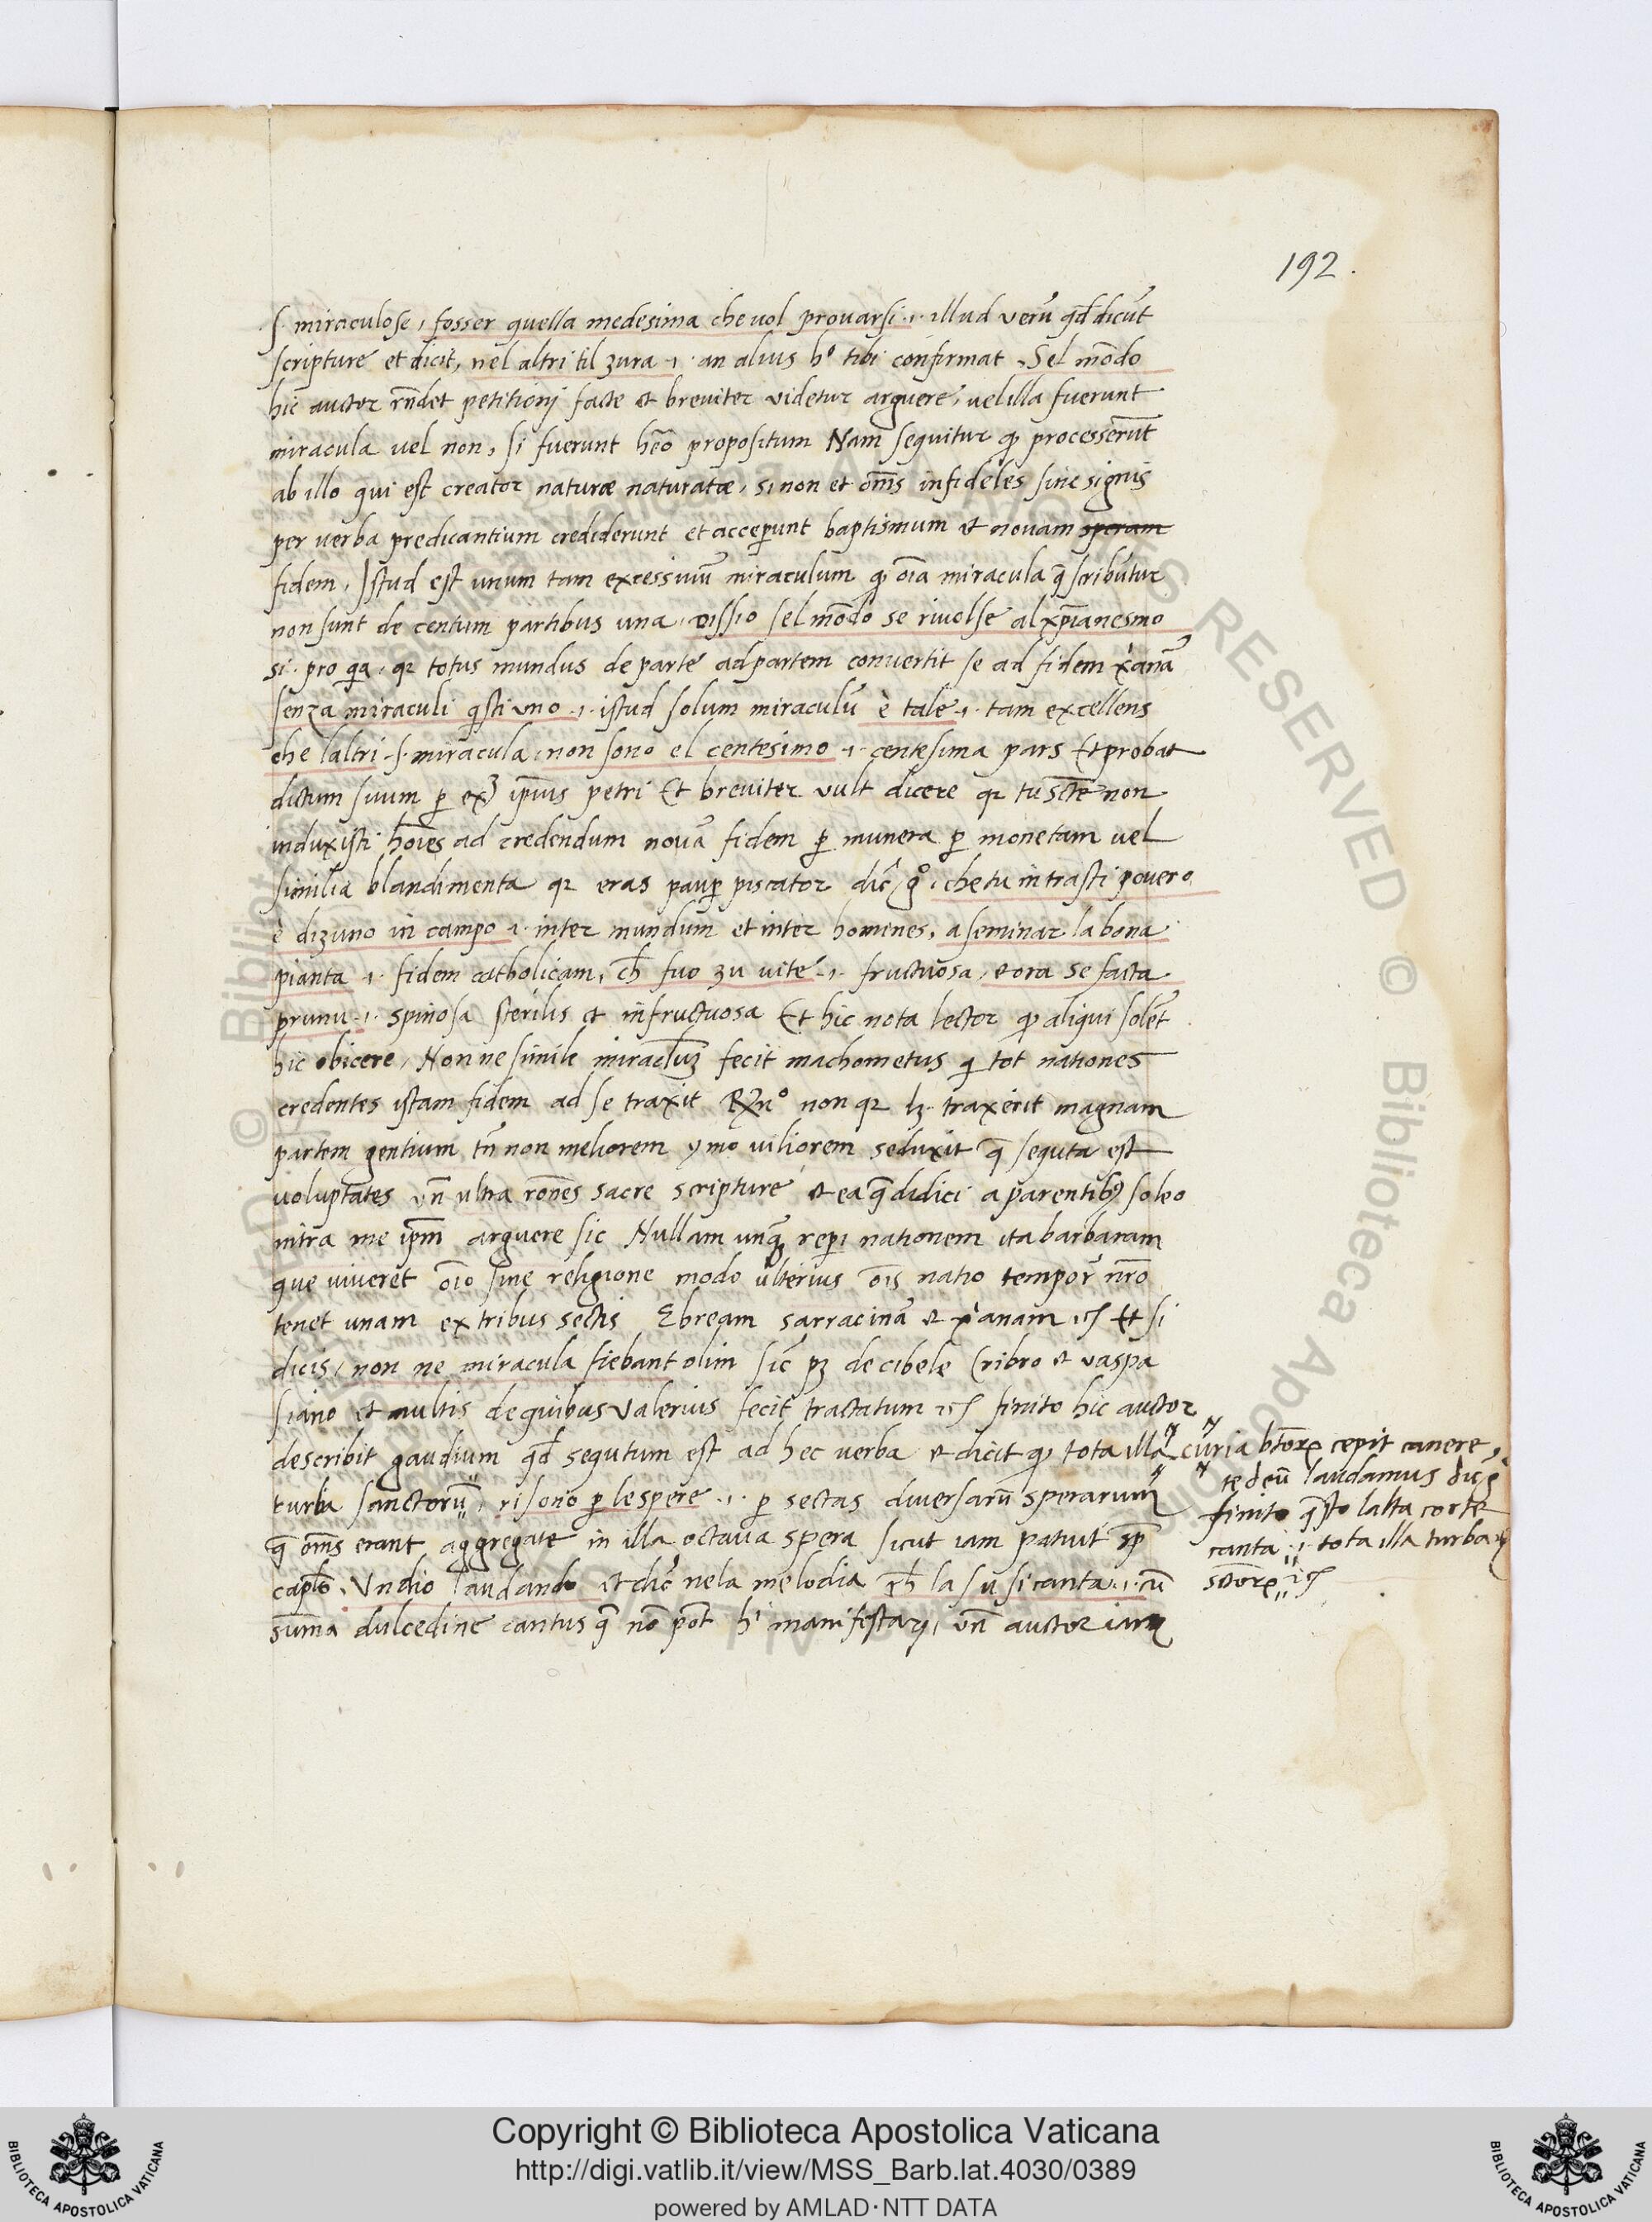 192.
.s. miraculose, fosser quella medesima che uol prouarsi .i. illud verũ qđ dicũt
scripture et dicit, nel altri til zura .i. an alius hᵒ tibi confirmat . Sel mõdo
hic auctor rñdet petitionj facte et breviter videtur arguere, vel illa fuerunt
miracula vel non, si fuerunt hẽo propositum Nam sequitur ꝙ processerũt
ab illo qui est creator naturæ naturatæ, si non et oms̃ infideles sine signis
per verba predicantium crediderunt et acceperunt baptismum et nouam speram
fidem, Istud est unum tam excessiuũ miraculum ꝙ oĩa miracula q̃ scribũtur
non sunt de centum partibus una, dissio sel mõdo se riuolse al xp̃ianesmo
si . pro quia . qꝛ totus mundus de parte ad partem convertit se ad fidem x̀anã
senza miraculi q̃sti uno .i. istud solum miraculũ è tale .i. tam excellens
che laltri .s. miracula, non sono el centesimo .i. centesima pars Et probat
dictum suum ꝑ exꝫ ip̃ius petri Et breviter vult dicere qꝛ tu sc̃te non
induxisti hoĩes ad credendum nouã fidem ꝑ munera ꝑ monetam vel
similia blandimenta qꝛ eras pauꝑ piscator dic̃ gᵒ . che tu intrasti pouero
è dizuno in campo .i. inter mundum et inter homines, a seminar la bona
pianta .i. fidem catholicam, cħ fuo zu uite .i. fructuosa, et ora se facta
prunu .i. spinosa sterilis et infructuosa Et hic nota lector ꝙ aliqui solẽt
hic obicere, Non ne simile miraclũꝫ fecit machometus qi tot nationes
credentes istam fidem ad se traxit Rx̃nᵒ non qꝛ lꝫ traxerit magnam
partem gentium tñ non meliorem ymo viliorem seduxit q̃ sequta est
voluptates vñ ultra rones̃ sacre scripture et ea q̃ didici a parentibꝫ soleo
intra me ip̃m arguere sic Nullam unq̃ꝫ reperi nationem ita barbaram
que viueret oĩo sine religione modo ulterius oĩs natio tempor̃ nr̃o
tenet unam ex tribus sectis Ebream sarracinã et x̀anam ꝛc Et si
dicis, non ne miracula fiebant olim sic̃ pꝫ de cibele Cribro et vaspa
siano et multis de quibus Valerius fecit tractatum ꝛc finito hic auctor
describit gaudium qđ sequtum est ad hec verba et dicit ꝙ tota illa
turba sanctorũ, risono ꝑ le spere .i. ꝑ sectas diversarũ sperarum
q̃ oms̃ erant aggregate in illa octava spera sicut iam patuit sp̃
caplõ . Un dio laudando et dic̃ nela melodia cħ la su si canta .i. cũ
sum̃a dulcedine cantus q̃ nõ põt hⁱ manifestarj, vñ auctor iam
curia bt̃oꝝ cepit canere,
te deũ laudamus dic̃ g̃
finito q̃sto lalta corte
canta .i. tota illa turba
sc̃toꝝ ꝛc
Copyright © Biblioteca Apostolica Vaticana
http://digi.vatlib.it/view/MSS_Barb.lat.4030/0389
powered by AMLAD·NTT DATA
BIBLIOTECA APOSTOLICA VATICANA
BIBLIOTECA APOSTOLICA VATICANA